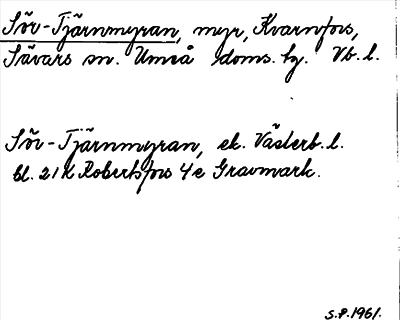 Sör-Tjärnmyran, myr, Kvarnfors,
Sävars sn. Umeå doms. hg. Vb. l.
Sör-Tjärnmyran, ek. Västerb. l.
bl. 21 K Robertsfors 4 e Gravmark.
S.P. 1961.